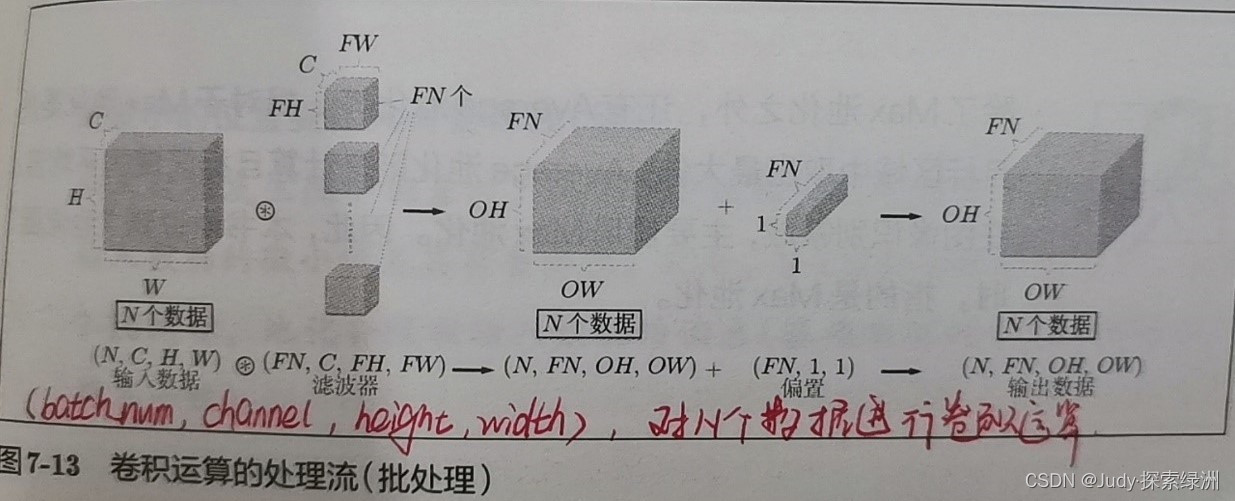 FW
C
FH
FN个
C
H
W
N个数据
FN
OH
OW
N个数据
+
FN
1
1
FN
OH
OW
N个数据
(N, C, H, W) ⊛ (FN, C, FH, FW) → (N, FN, OH, OW) + (FN, 1, 1) → (N, FN, OH, OW)
输入数据 滤波器 偏置 输出数据
(batch num, channel, height, width), 对N个数据进行卷积运算
图7-13 卷积运算的处理流(批处理)
CSDN @Judy·探索绿洲